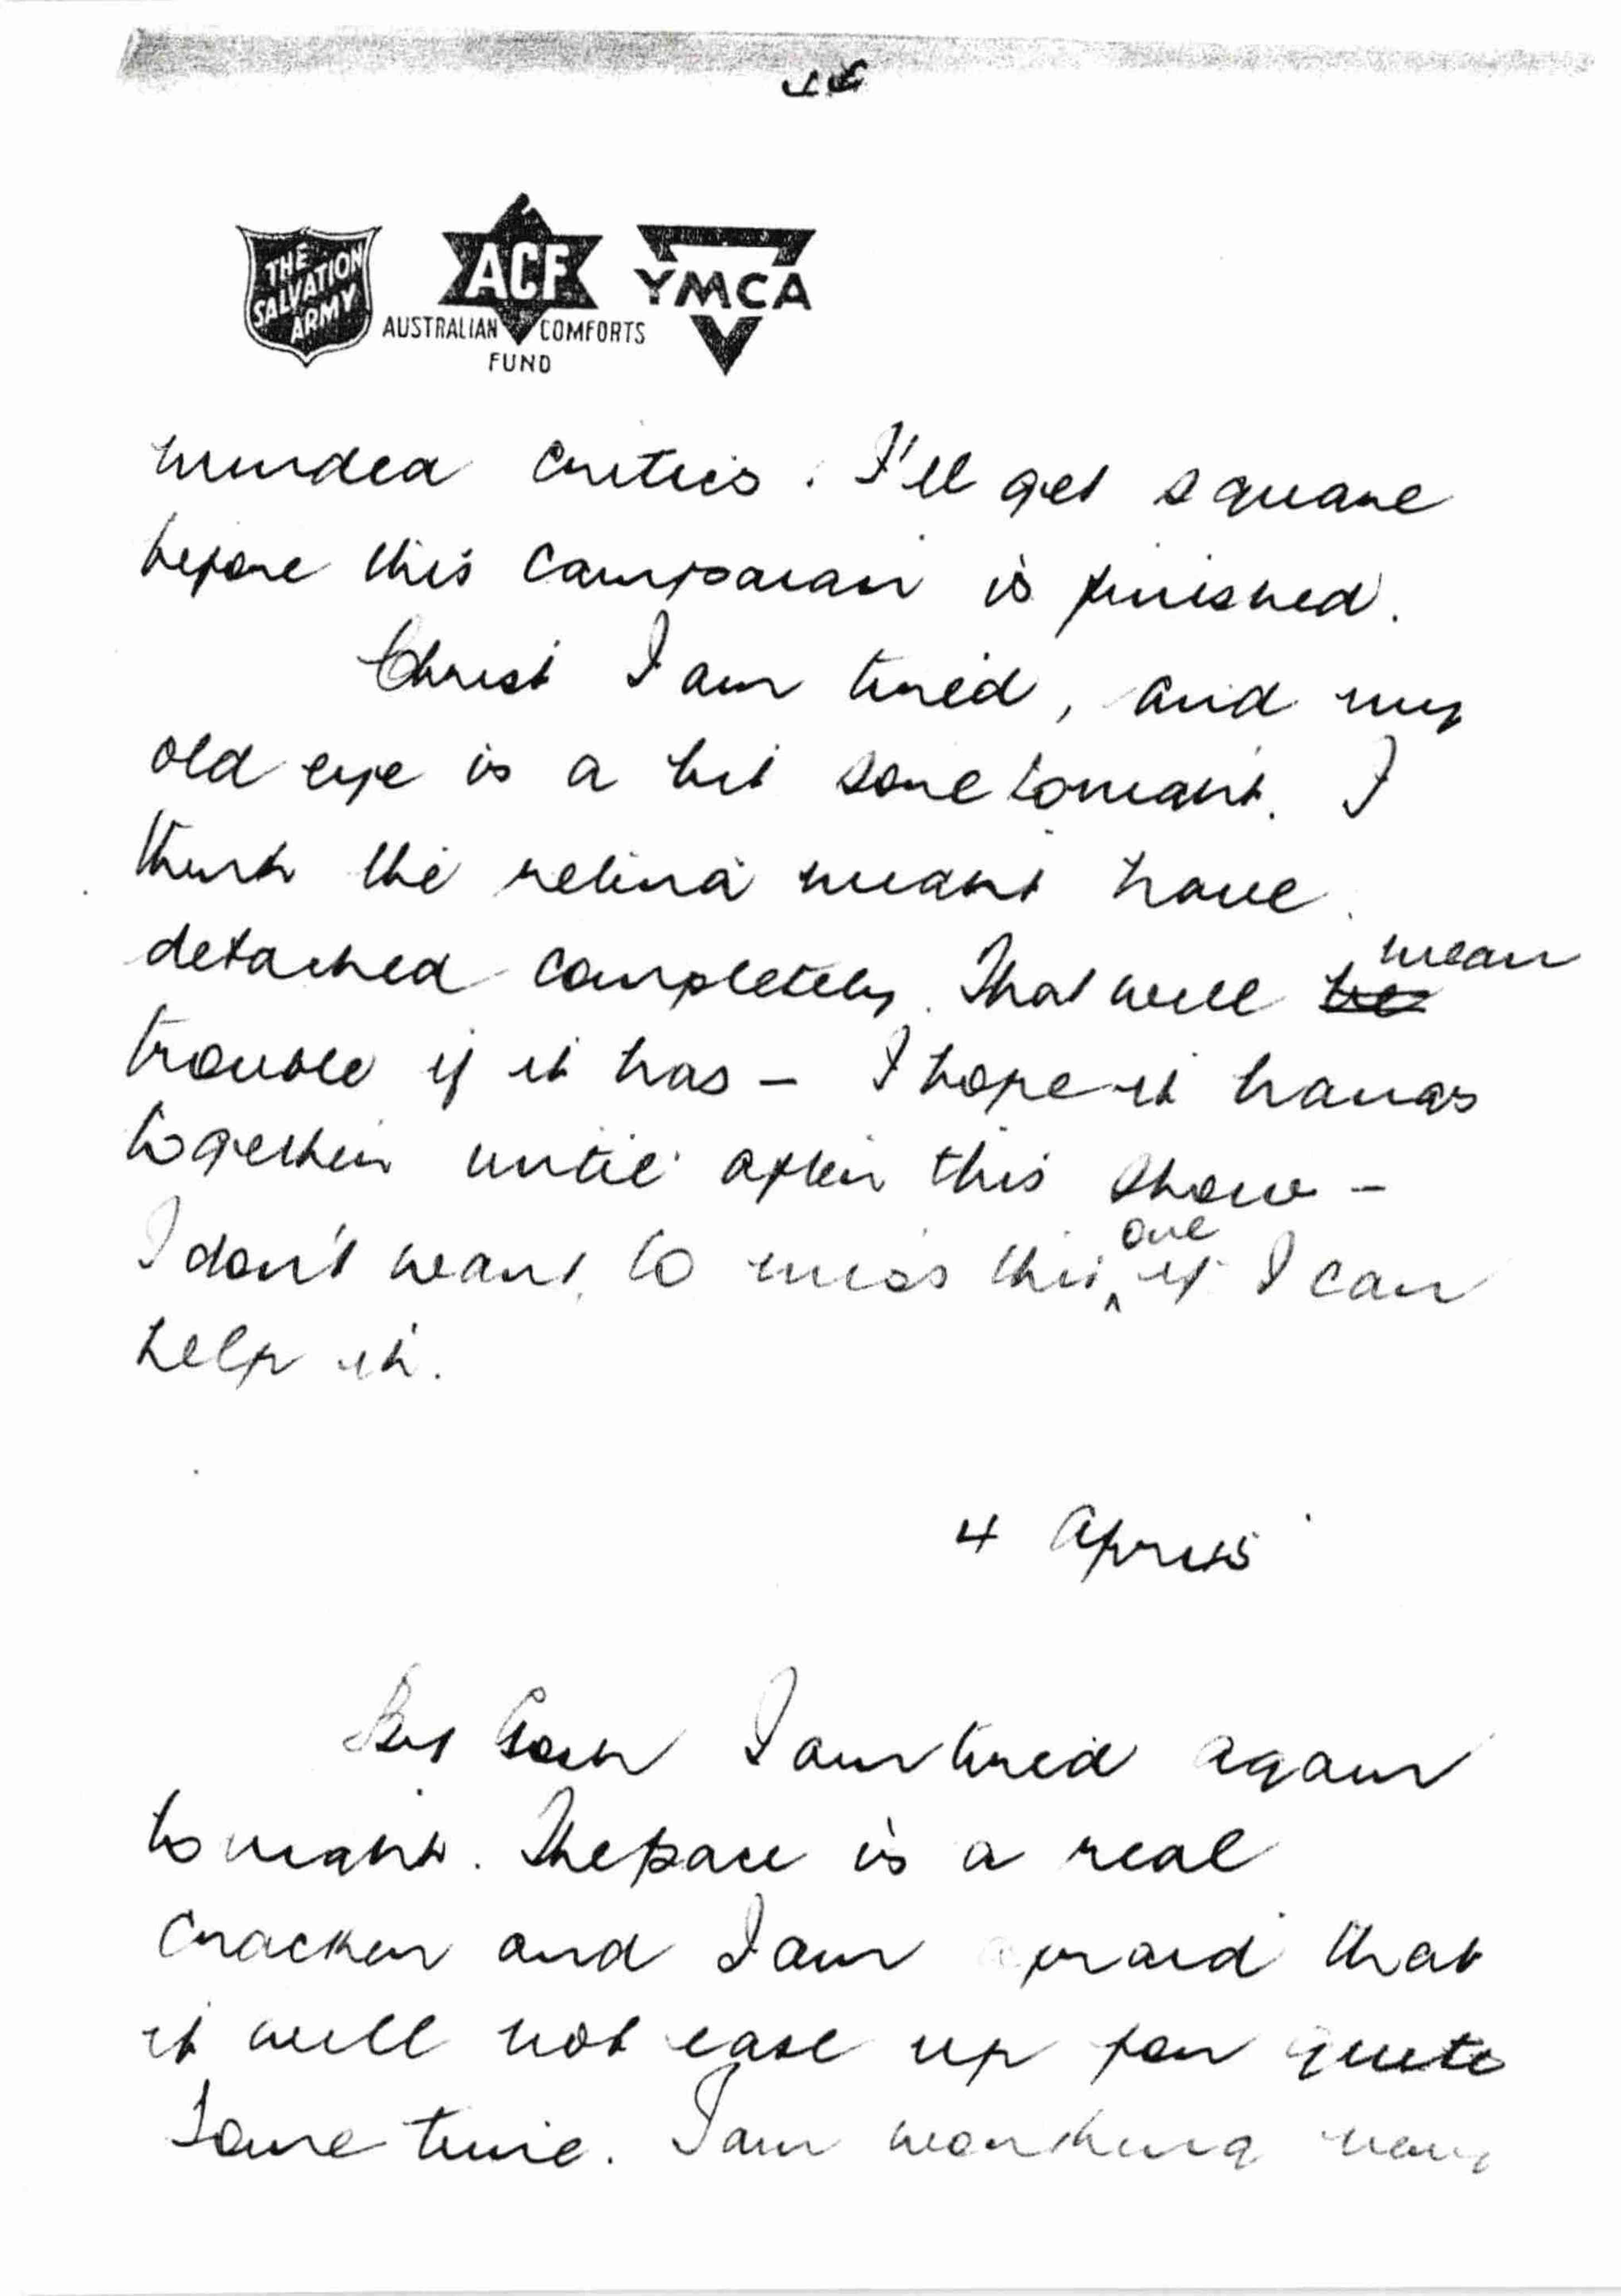 THE SALVATION ARMY
ACF
AUSTRALIAN COMFORTS
FUND
YMCA
minded critics. I'll get square
before this campaign is finished.
Christ I am tired, and my
old eye is a bit sore tonight. I
think the retina might have
detached completely. That will be mean
trouble if it has – I hope it hangs
together until after this show –
I don't want to miss this one if I can
help it.
4 April
But Gosh I am tired again
tonight. The pace is a real
cracker and I am afraid that
it will not ease up for quite
some time. I am working very